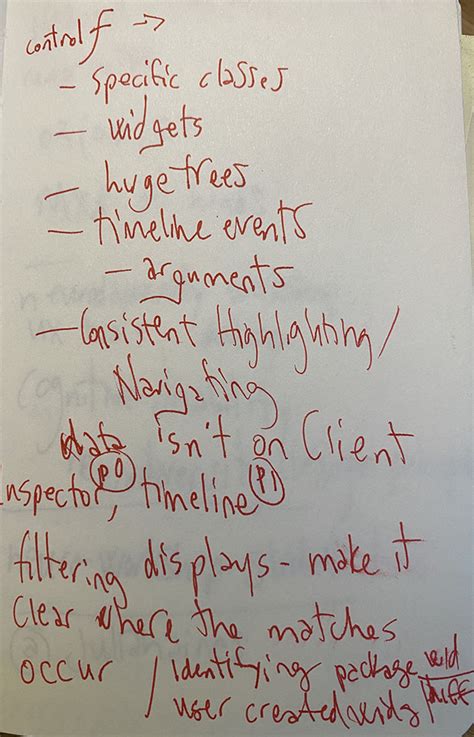 control f →
- specific classes
- widgets
- huge trees
- timeline events
- arguments
- Consistent Highlighting /
Navigating
data isn't on Client
Inspector, (P0) timeline (P1)
filtering displays - make it
Clear where the matches
occur / identifying package
user created